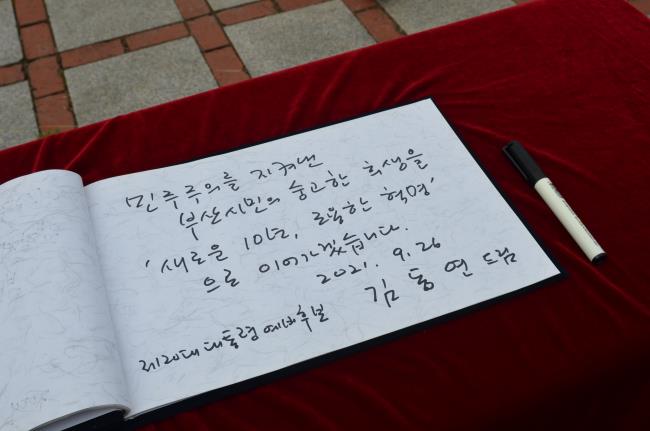 민주주의를 지켜낸
부산시민의 숭고한 희생을
'새로운 10년, 조용한 혁명'
으로 이어가겠습니다.
2021. 9. 26
제20대 대통령 예비후보 김동연 드림